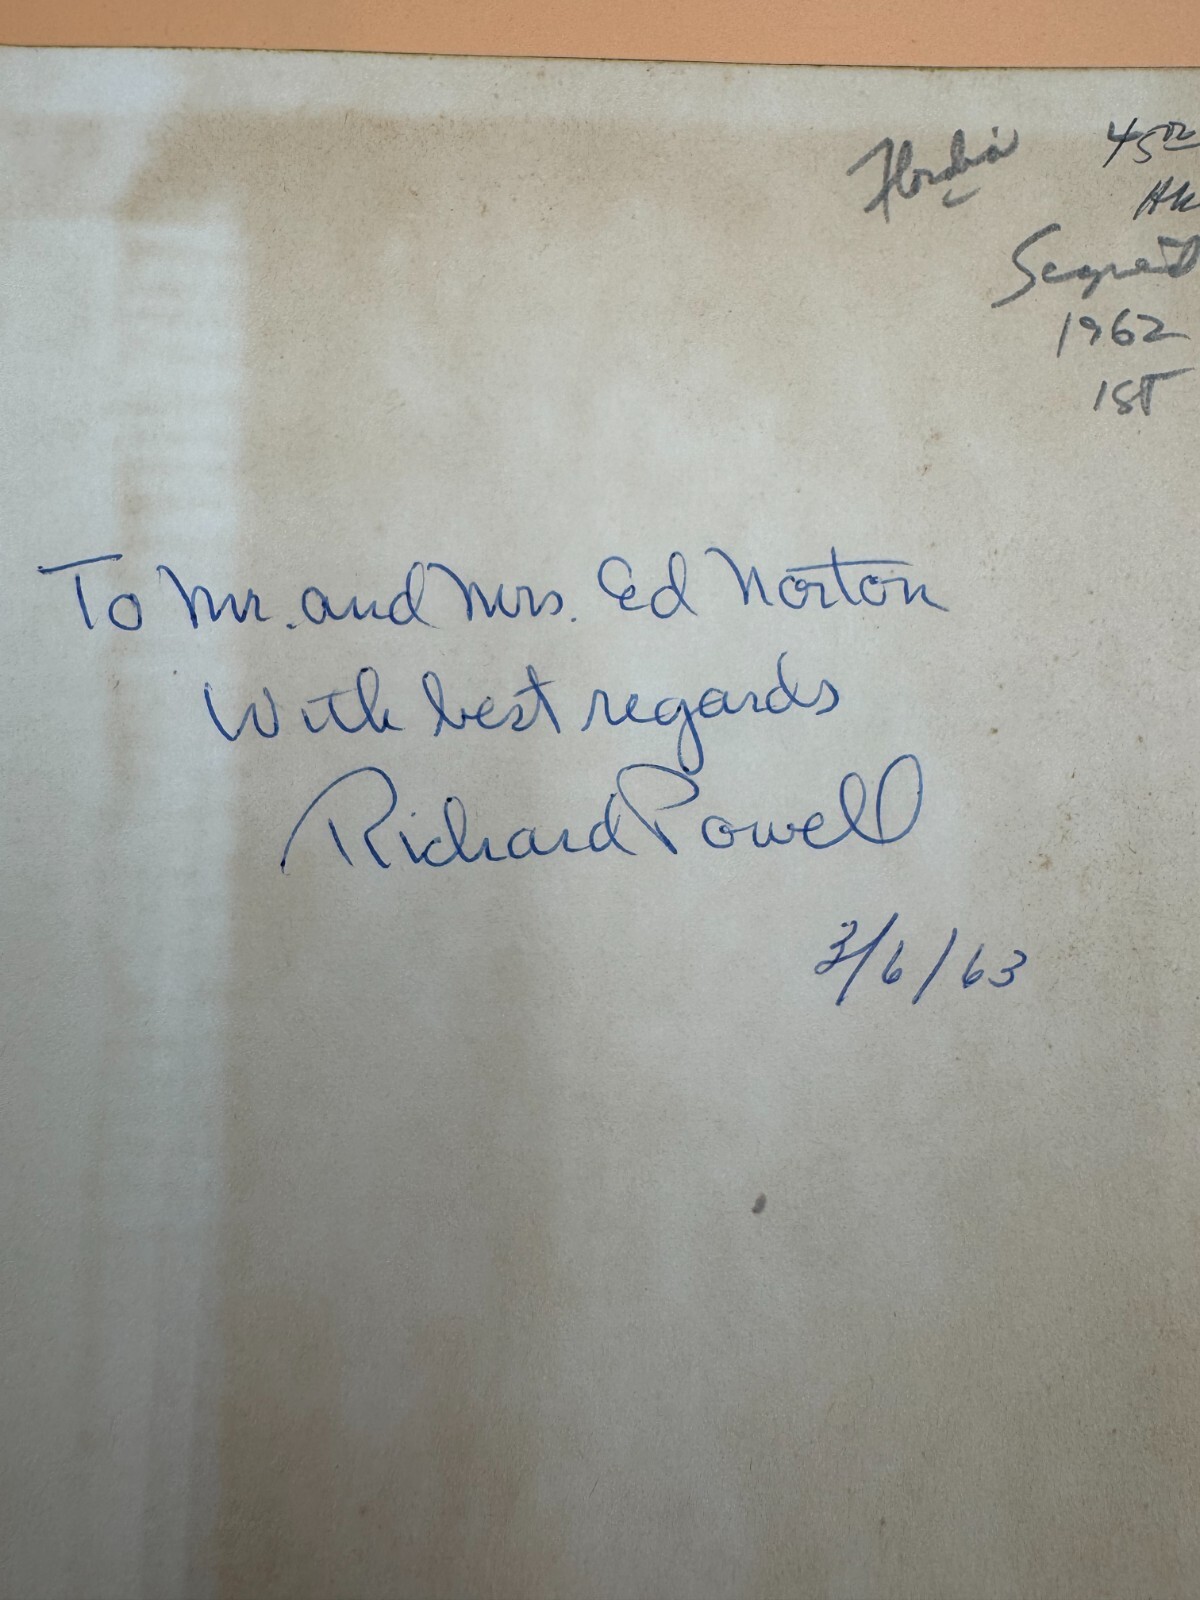 Florida 45⁰⁰
HK
Signed
1962
1ST
To Mr. and Mrs. Ed Norton
With best regards
Richard Powell
3/6/63